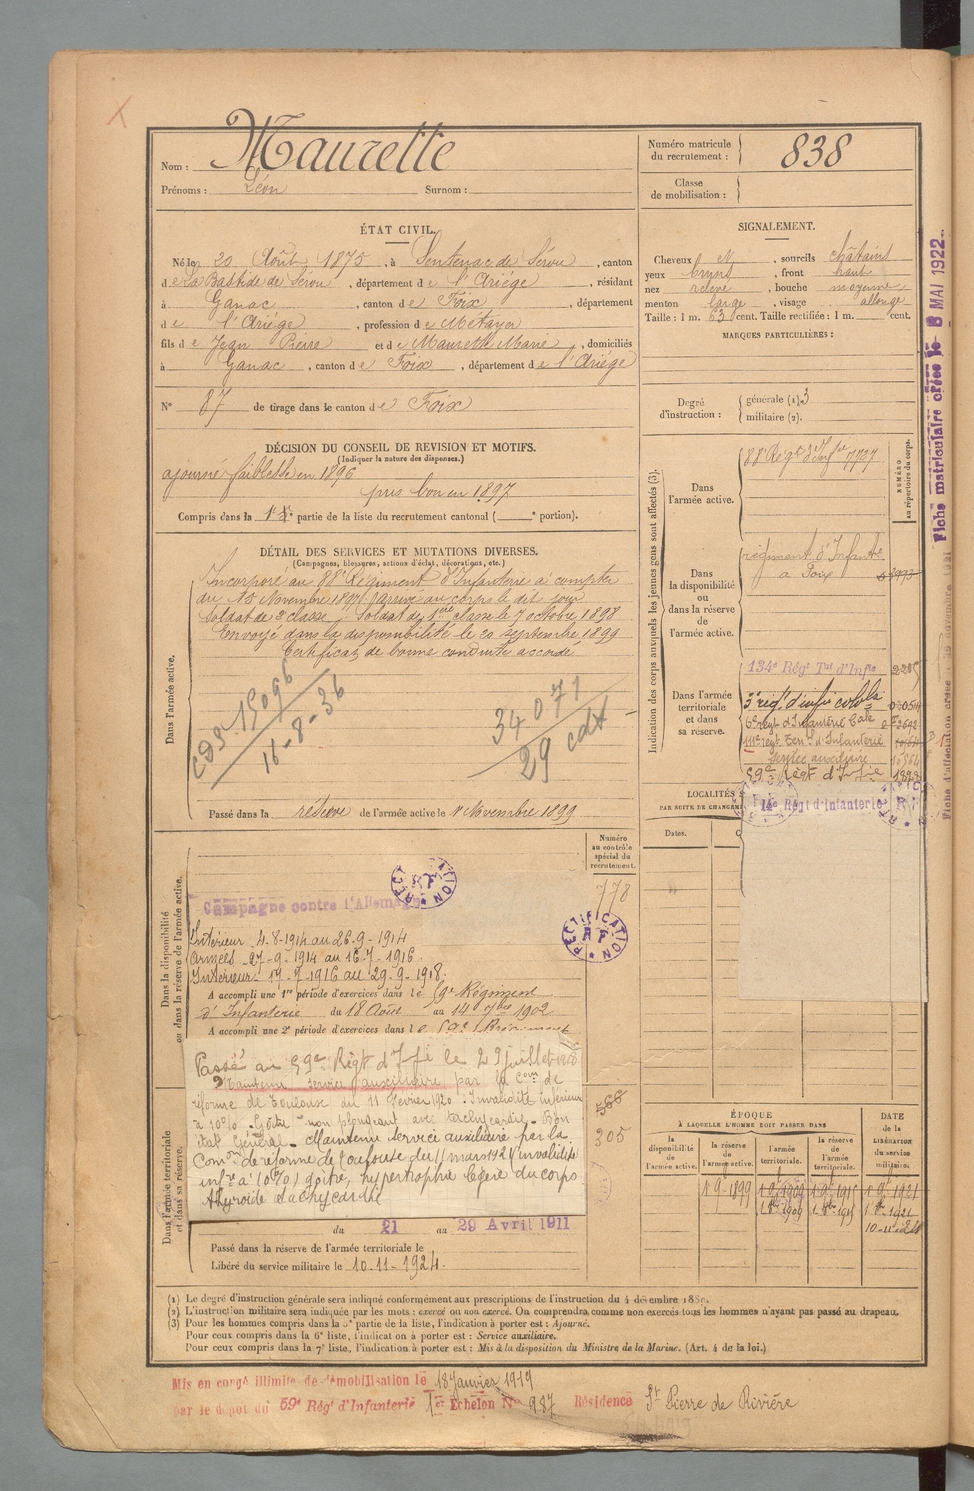 Nom : Maurette
Prénoms : Léon Surnom :
Numéro matricule du recrutement : 838
Classe de mobilisation :
ÉTAT CIVIL.
Né le 20 Août 1875, à Sentenac de Sérou, canton
de La Bastide de Sérou, département de l'Ariège, résidant
à Ganac, canton de Foix, département
de l'Ariège, profession de Métayer
fils de Jean Pierre et de Maurette Marie, domiciliés
à Ganac, canton de Foix, département de l'Ariège
N° 87 de tirage dans le canton de Foix
SIGNALEMENT.
Cheveux N, sourcils châtains
yeux bruns, front haut
nez relevé, bouche moyenne
menton large, visage allongé
Taille : 1 m. 63 cent. Taille rectifiée : 1 m. cent.
MARQUES PARTICULIÈRES :
Degré d'instruction : générale (1) 3
militaire (2).
DÉCISION DU CONSEIL DE REVISION ET MOTIFS.
(Indiquer la nature des dispenses.)
ajourné faiblesse en 1896
pris bon en 1897
Compris dans la 1e partie de la liste du recrutement cantonal ( e portion).
DÉTAIL DES SERVICES ET MUTATIONS DIVERSES.
(Campagnes, blessures, actions d'éclat, décorations, etc.)
Dans l'armée active.
Incorporé au 88e Régiment d'Infanterie à compter
du 15 Novembre 1897 arrivé au corps le dit jour
soldat de 2e classe, Soldat de 1ère classe le 7 octobre 1898
Envoyé dans la disponibilité le 20 septembre 1899
Certificat de bonne conduite accordé
CDS 15096
11-8-36
34071
29 cdx
Passé dans la réserve de l'armée active le 1 Novembre 1899
Indication des corps auxquels les jeunes gens sont affectés (3).
NUMÉRO au répertoire du corps.
Dans l'armée active.
88e Régt d'Infie 7727
Dans la disponibilité ou dans la réserve de l'armée active.
régiment d'Infantie
à Foix
Dans l'armée territoriale et dans sa réserve.
134e Régt Tal d'Infie
3e rég. d'infie colole
6e régt d'Infanterie Cale
111e régt Terr. d'Infanterie
Service auxiliaire
59e Régt d'Infie
14e Régt d'Infanterie
LOCALITÉS
PAR SUITE DE CHANGEM
Dates.
Fiche matriculaire créée le 8 MAI 1922
Dans la disponibilité ou dans la réserve de l'armée active.
Numéro au contrôle spécial du recrutement.
778
RECTIFICATION RF
Campagne contre l'Allemagne
Intérieur 4-8-1914 au 26-9-1914
Armées 27-9-1914 au 16-7-1916
A accompli une 1re période d'exercices dans le 59e Régiment
d'Infanterie du 18 Août au 14 7bre 1902
A accompli une 2e période d'exercices dans le 59e Régiment
Dans l'armée territoriale et dans sa réserve.
Passé au 59e Régt d'Infie le 29 juillet
Maintenu service auxiliaire par la Com de
réforme de Toulouse du 11 Février 1920 : Invalidité inférieure
à 10% Goitre non plongeant avec tachycardie. Bon
état Général. Maintenu service auxiliaire par la
Comon de réforme de Toulouse du 11 mars 1921 invalidité
infre à 10% goitre, hypertrophie légère du corps
thyroïde tachycardie
568
305
du 21 au 29 Avril 1911
Passé dans la réserve de l'armée territoriale le
Libéré du service militaire le 10-11-1924.
ÉPOQUE
À LAQUELLE L'HOMME DOIT PASSER DANS
DATE de la LIBÉRATION du service militaire.
la disponibilité de l'armée active.
la réserve de l'armée active.
l'armée territoriale.
la réserve de l'armée territoriale.
1 9 1899 1 9 1909 1 9 1915 1 9 1921
(1) Le degré d'instruction générale sera indiqué conformément aux prescriptions de l'instruction du 4 décembre 1889.
(2) L'instruction militaire sera indiquée par les mots : exercé ou non exercé. On comprendra comme non exercés tous les hommes n'ayant pas passé au drapeau.
(3) Pour les hommes compris dans la 5e partie de la liste, l'indication à porter est : Ajourné.
Pour ceux compris dans la 6e liste, l'indication à porter est : Service auxiliaire.
Pour ceux compris dans la 7e liste, l'indication à porter est : Mis à la disposition du Ministre de la Marine. (Art. 4 de la loi.)
Mis en congé illimité de démobilisation le 18 Janvier 1919
par le dépôt du 59e Régt d'Infanterie 1er Echelon N° 987 Résidence St Pierre de Rivière